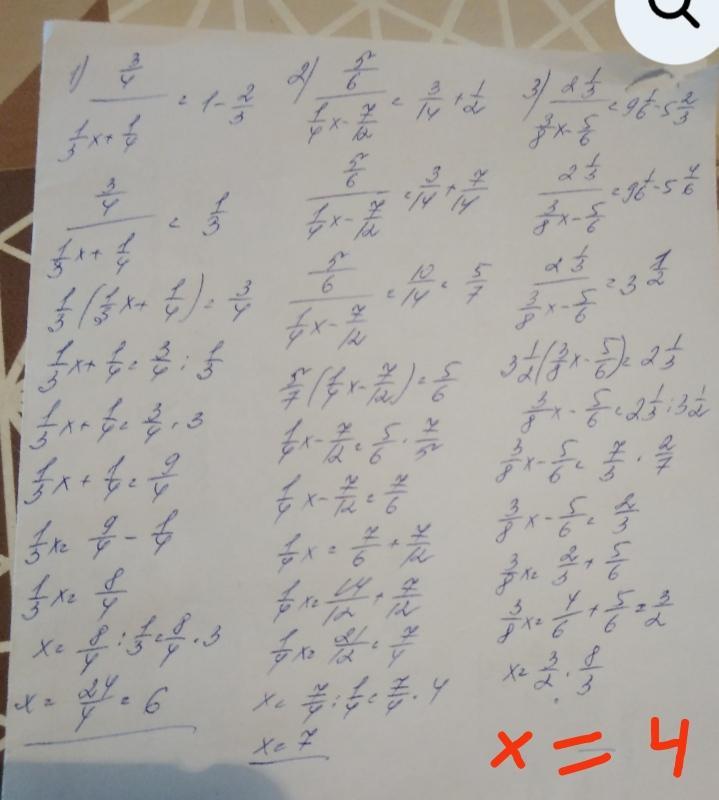 1) (3/4)/(1/3x+1/4) = 1-2/3
(3/4)/(1/3x+1/4) = 1/3
1/3(1/3x+1/4)=3/4
1/3x+1/4=3/4:1/3
1/3x+1/4=3/4·3
1/3x+1/4=9/4
1/3x=9/4-1/4
1/3x=8/4
x=8/4:1/3=8/4·3
x=24/4=6
2) (5/6)/(1/4x-7/12)=3/14+1/2
(5/6)/(1/4x-7/12)=3/14+7/14
(5/6)/(1/4x-7/12)=10/14=5/7
5/7(1/4x-7/12)=5/6
1/4x-7/12=5/6·7/5
1/4x-7/12=7/6
1/4x=7/6+7/12
1/4x=14/12+7/12
1/4x=21/12=7/4
x=7/4:1/4=7/4·4
x=7
3) (2 1/3)/(3/8x-5/6)=9 1/6-5 2/3
(2 1/3)/(3/8x-5/6)=9 1/6-5 4/6
(2 1/3)/(3/8x-5/6)=3 1/2
3 1/2(3/8x-5/6)=2 1/3
3/8x-5/6=2 1/3:3 1/2
3/8x-5/6=7/3·2/7
3/8x-5/6=2/3
3/8x=2/3+5/6
3/8x=4/6+5/6=3/2
x=3/2·8/3
x=4